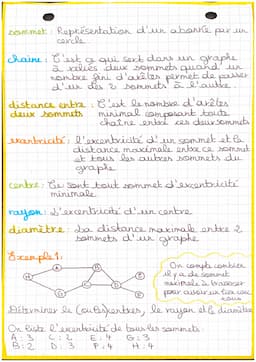 sommet : Représentation d'un abonné par un
cercle
chaîne : C'est ce qui sert dans un graphe
à reliés deux sommets quand un
nombre fini d'arêtes permet de passer
d'un des 2 sommets à l'autre.
distance entre : C'est le nombre d'arêtes
deux sommets minimal composant toute
chaîne entre ces deux sommets
excentricité : l'excentricité d'un sommet et la
distance maximale entre ce sommet
et tous les autres sommets du
graphe
centre : Ce sont tout sommet d'excentricité
minimale
rayon : L'excentricité d'un centre
diamètre : La distance maximale entre 2
sommets d'un graphe
Exemple 1 :
On compte combien
il y a de sommet
maximale à traverser
pour
Déterminer le (ou les) centres, le rayon et le diamètre
On liste l'excentricité de tous les sommets :
A : 3 C : 2 E : 4 G : 3
B : 2 D : 3 F : 4 H : 4